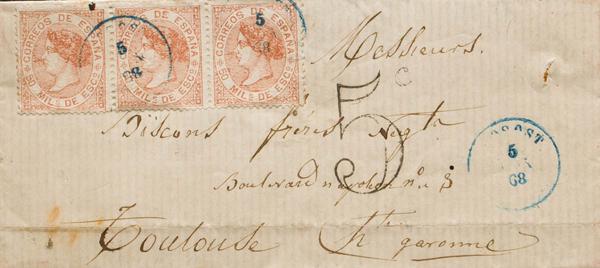 CORREOS DE ESPAÑA
50 MILS DE ESCO
CORREOS DE ESPAÑA
50 MILS DE ESCO
CORREOS DE ESPAÑA
50 MILS DE ESCO
5
68
5
68
Messieurs.
C
5
Biscons frères Negts
OST
5
68
Boulevard napoléon no 8
Toulouse Hte garonne